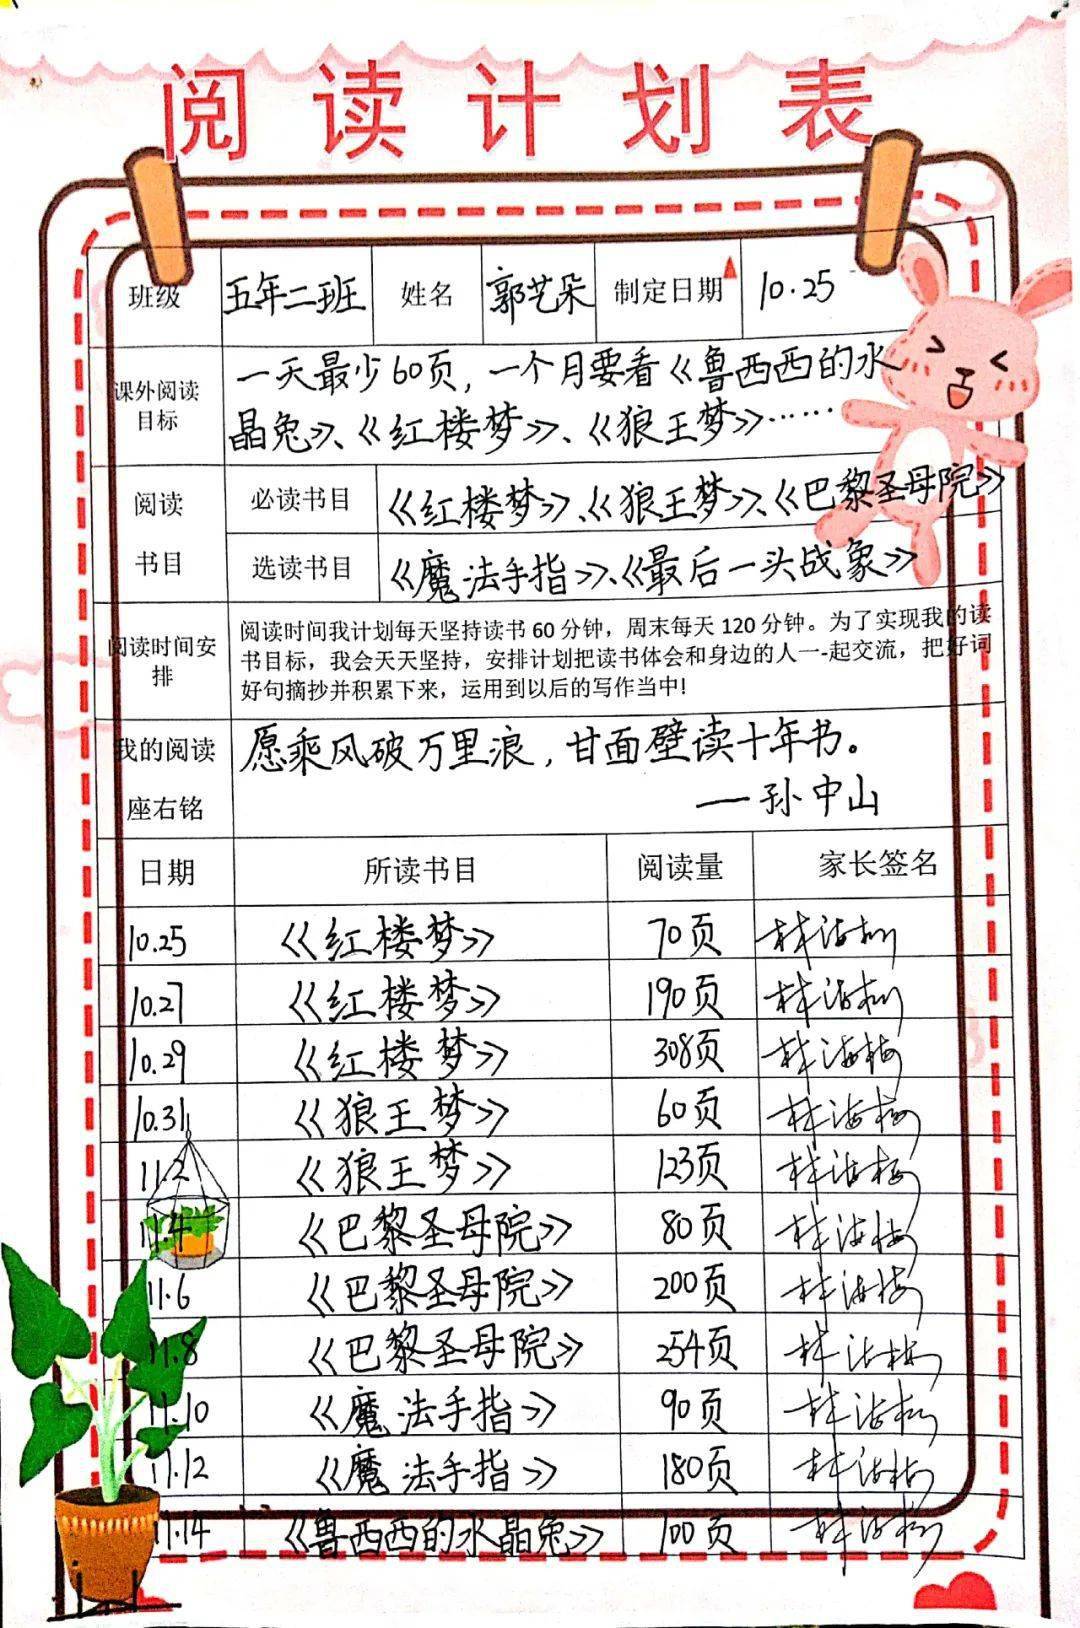 阅读计划表
班级 五年二班 姓名 郭艺朵 制定日期 10.25
课外阅读目标 一天最少60页，一个月要看《鲁西西的水
晶兔》、《红楼梦》、《狼王梦》……
阅读书目 必读书目 《红楼梦》、《狼王梦》、《巴黎圣母院》
选读书目 《魔法手指》、《最后一头战象》
阅读时间安排 阅读时间我计划每天坚持读书60分钟，周末每天120分钟。为了实现我的读
书目标，我会天天坚持，安排计划把读书体会和身边的人一-起交流，把好词
好句摘抄并积累下来，运用到以后的写作当中!
我的阅读座右铭 愿乘风破万里浪，甘面壁读十年书。
——孙中山
日期 所读书目 阅读量 家长签名
10.25 《红楼梦》 70页 林海梅
10.27 《红楼梦》 190页 林海梅
10.29 《红楼梦》 308页 林海梅
10.31 《狼王梦》 60页 林海梅
11.2 《狼王梦》 123页 林海梅
11.4 《巴黎圣母院》 80页 林海梅
11.6 《巴黎圣母院》 200页 林海梅
11.8 《巴黎圣母院》 254页 林海梅
11.10 《魔法手指》 90页 林海梅
11.12 《魔法手指》 180页 林海梅
11.14 《鲁西西的水晶兔》 100页 林海梅